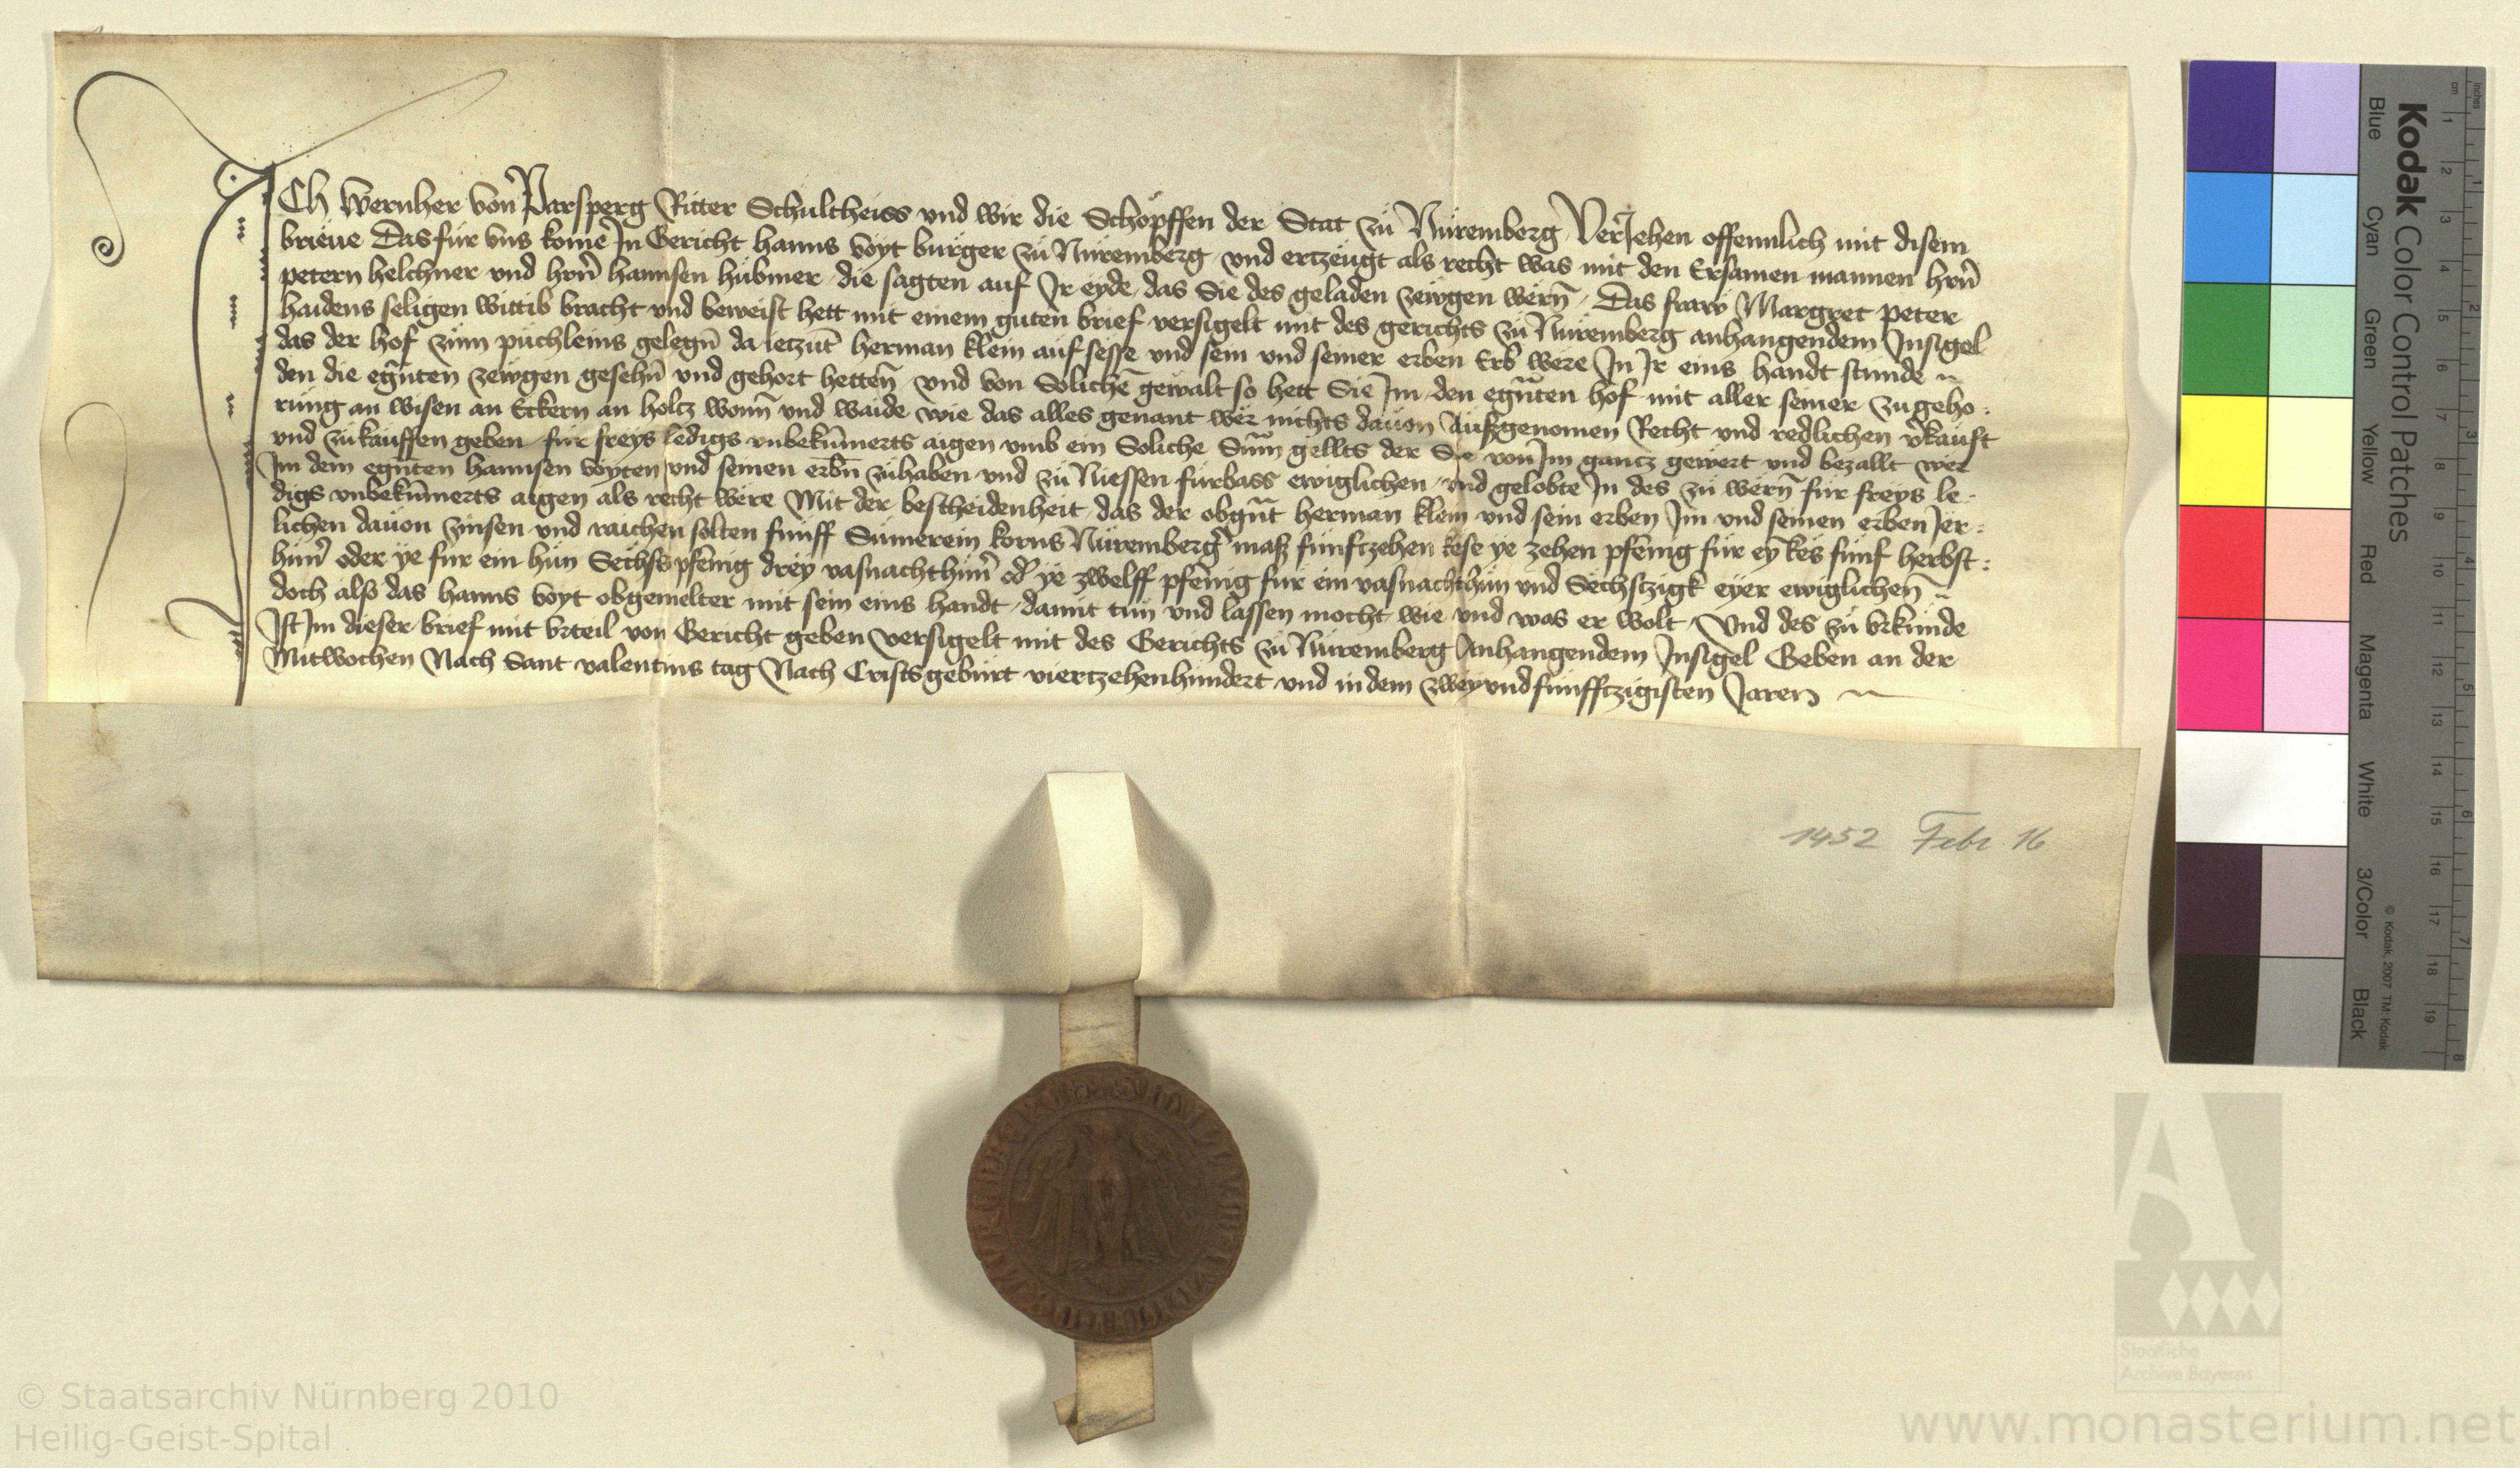 ICh Wernher von Parsperg Ritter Schultheiss vnd wir die Schopffen der Stat zu Nüremberg Veriehen offennlich mit disem
brieue Das für vns kome In Gericht hanns voyt burger zu Nüremberg vnd ertzeugt als recht was mit den Ersamen mannen hrñ
petern helchner vnd hrñ hannsen hübmer die sagten auf Ir eyde das Sie des geladen zewgen wern̄ Das fraw Margret peter
haidens seligen wittib bracht vnd beweist hett mit einem guten brief versigelt mit des gerichts zu Nüremberg anhangendem Insigel
das der hof zum püchleins gelegñ da ietzūt herman klein auf sesse vnd sein vnd seiner erben Erb were In Ir eins handt stunde
den die egñten zewgen gesehñ vnd gehort hetten̄ vnd von Solichē gewalt so hett Sie Im den egñten hof mit aller seiner zugeho:
rung an wisen an Eckern an holtz wonn̄ vnd waide wie das alles genant wer nichts dauon Außgenomen Recht vnd redlichen v̄kauft
vnd zukauffen geben für freys ledigs vnbekūmerts aigen vmb ein Soliche Sum̄ gellts der Sie von Im gantz gewert vnd bezallt wer
Im dem egñten hannsen voyten vnd seinen erbñ zuhaben vnd zu Niessen fürbass ewiglichen vnd gelobte In des zu wern̄ für freys le-
digs vnbekūmerts aigen als recht were Mit der bescheidenheit das der obgñt herman klein vnd sein erben Im vnd seinen erben Jer:
lichen dauon zinsen vnd raichen solten fünff Sümerein korns Nüremberg̉ maß fünftzehen kese ye zehen pfenig für ey̅ kes fünf herbst:
hün̉ oder ye für ein hün Sechss pfenig drey vasnachthün̉ od̉ ye zwelff pfenig für ein vasnachthün vnd Sechtzigk eyer ewiglichen̄
doch alß das hanns voyt obgemelter mit sein eins handt damit tün vnd lassen mocht wie vnd was er wolt Vnd des zu vrkünde
Ist Im dieser brief mit vrteil von Gericht geben versigelt mit des Gerichts zu Nüremberg Anhangendem Insigel Geben an der
Mitwochen Nach Sant valentins tag Nach Cristsgebürt viertzehenhundert vnd in dem zwey vnd fünfftzigisten Jaren
1452 Febr 16
Kodak Color Control Patches
Blue Cyan Green Yellow Red Magenta White 3/Color Black
© Kodak, 2007 TM: Kodak
inches 1 2 3 4 5 6 7 8
cm 1 2 3 4 5 6 7 8 9 10 11 12 13 14 15 16 17 18 19
Staatliche
Archive Bayerns
© Staatsarchiv Nürnberg 2010
Heilig-Geist-Spital
www.monasterium.net